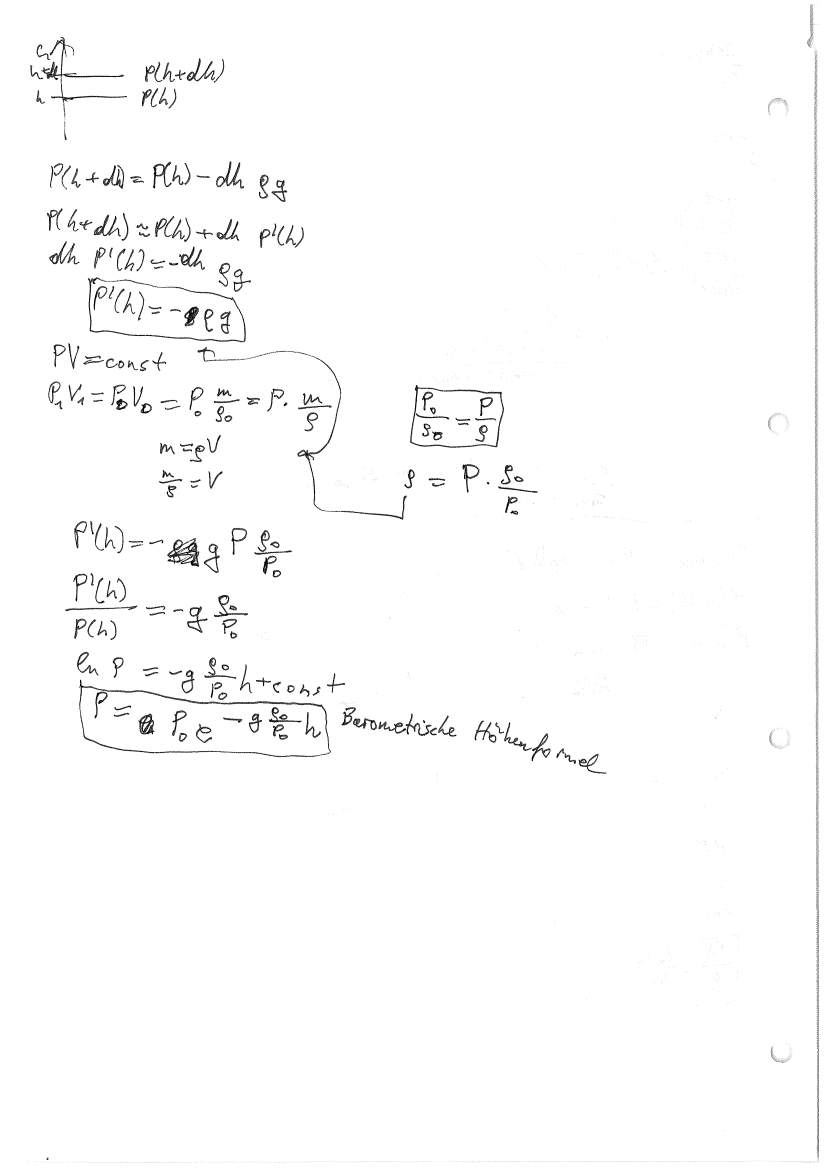 h
h+dh P(h+dh)
h P(h)
P(h+dh) = P(h) - dh ρg
P(h+dh) ≈ P(h) + dh P'(h)
dh P'(h) = -dh ρg
P'(h) = - ρg
PV = const
P₁V₁ = P₀V₀ = P₀ m/ρ₀ = P · m/ρ
P₀/ρ₀ = P/ρ
m = ρV
m/ρ = V
ρ = P · ρ₀/P₀
P'(h) = - g P ρ₀/P₀
P'(h)/P(h) = -g ρ₀/P₀
ln P = -g ρ₀/P₀ h + const
P = P₀ e^(-g ρ₀/P₀ h) Barometrische Höhenformel